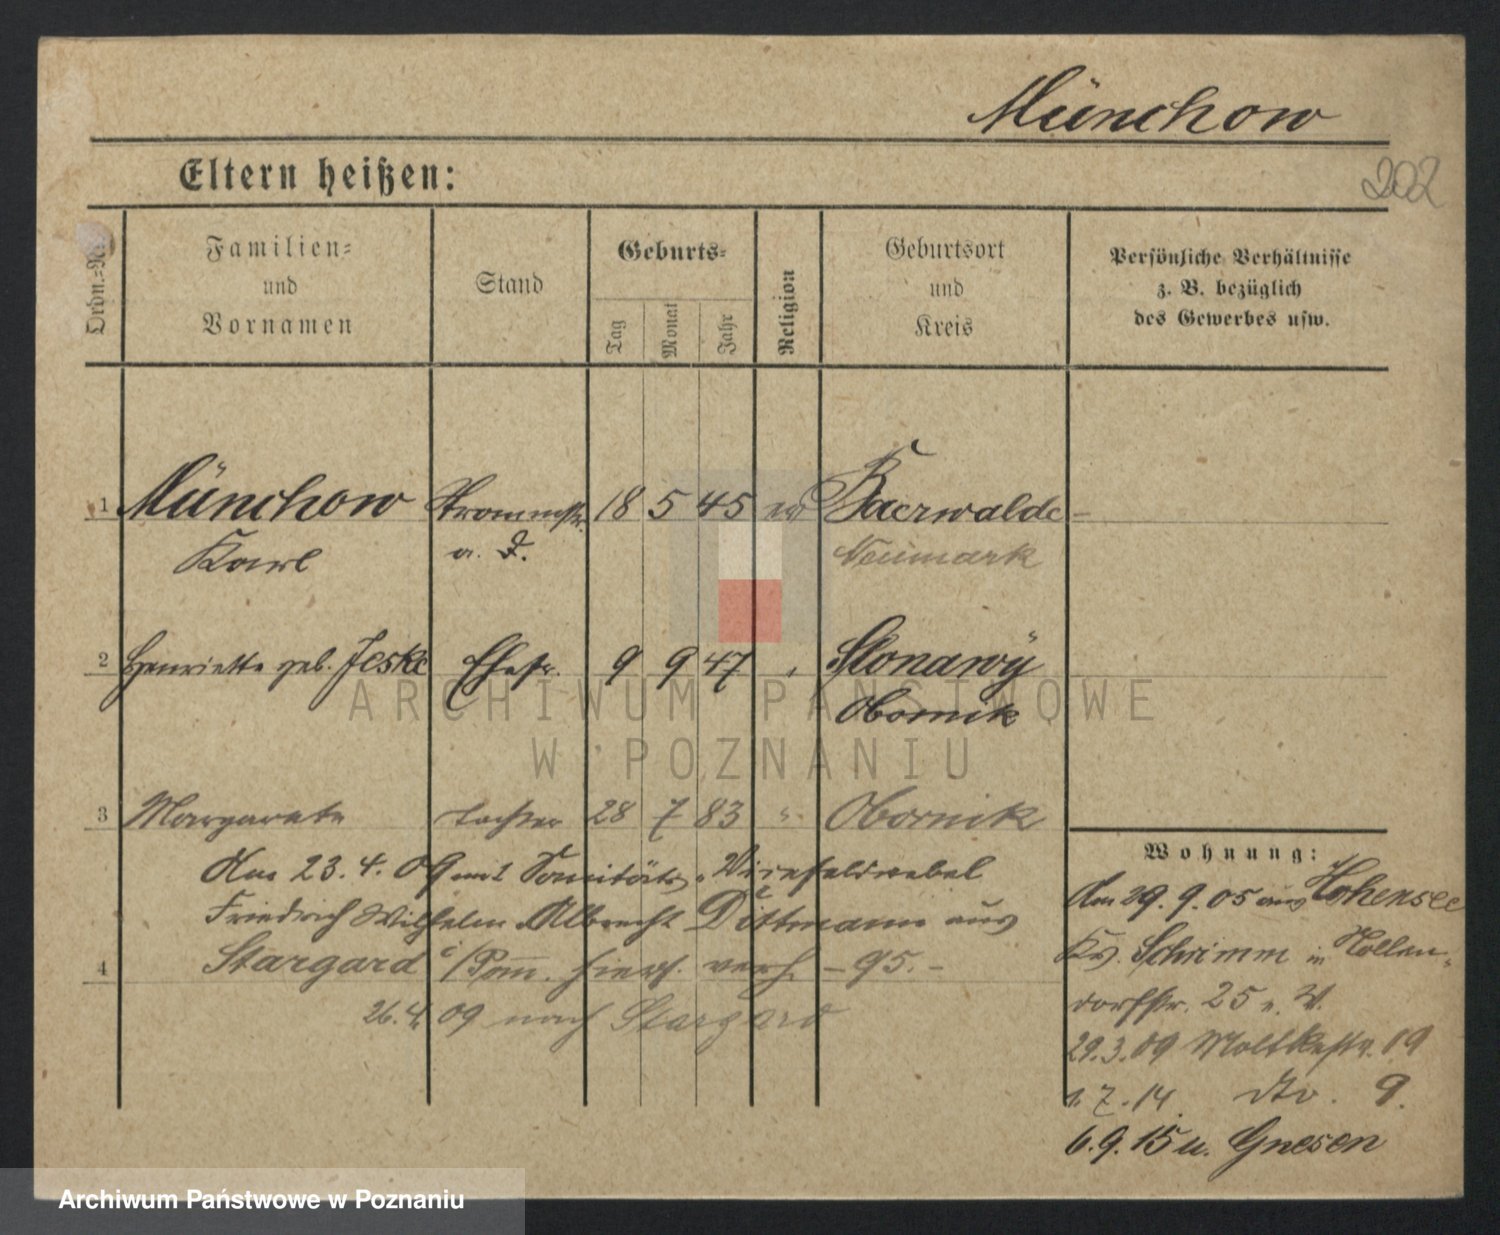 Münchow
202
Eltern heißen:
Ordn.-Nr.
Familien-
und
Vornamen
Stand
Geburts-
Tag
Monat
Jahr
Religion
Geburtsort
und
Kreis
Persönliche Verhältnisse
z. B. bezüglich
des Gewerbes usw.
1 Münchow Strommstr. 18 5 45 ev Baerwalde
Karl a. D. Neumark
2 Henriette geb. Jeske Ehefr. 9 9 47 " Slonawy
Obornik
3 Margarete Tochter 28 7 83 " Obornik
Am 23.4.09 mit Sanitäts-Vizefeldwebel
Friedrich Wilhelm Albrecht Dittmann aus
4 Stargard i/Pom. hiers. verh. - 95. -
26.4.09 nach Stargard
Wohnung:
Am 29.9.05 aus Hohensee
Kr. Schrimm in Hollen-
dorfstr. 25
29.3.09 Moltkestr. 19
1.7.14. dto. 9.
6.9.15 n. Gnesen
ARCHIWUM PAŃSTWOWE
W POZNANIU
Archiwum Państwowe w Poznaniu